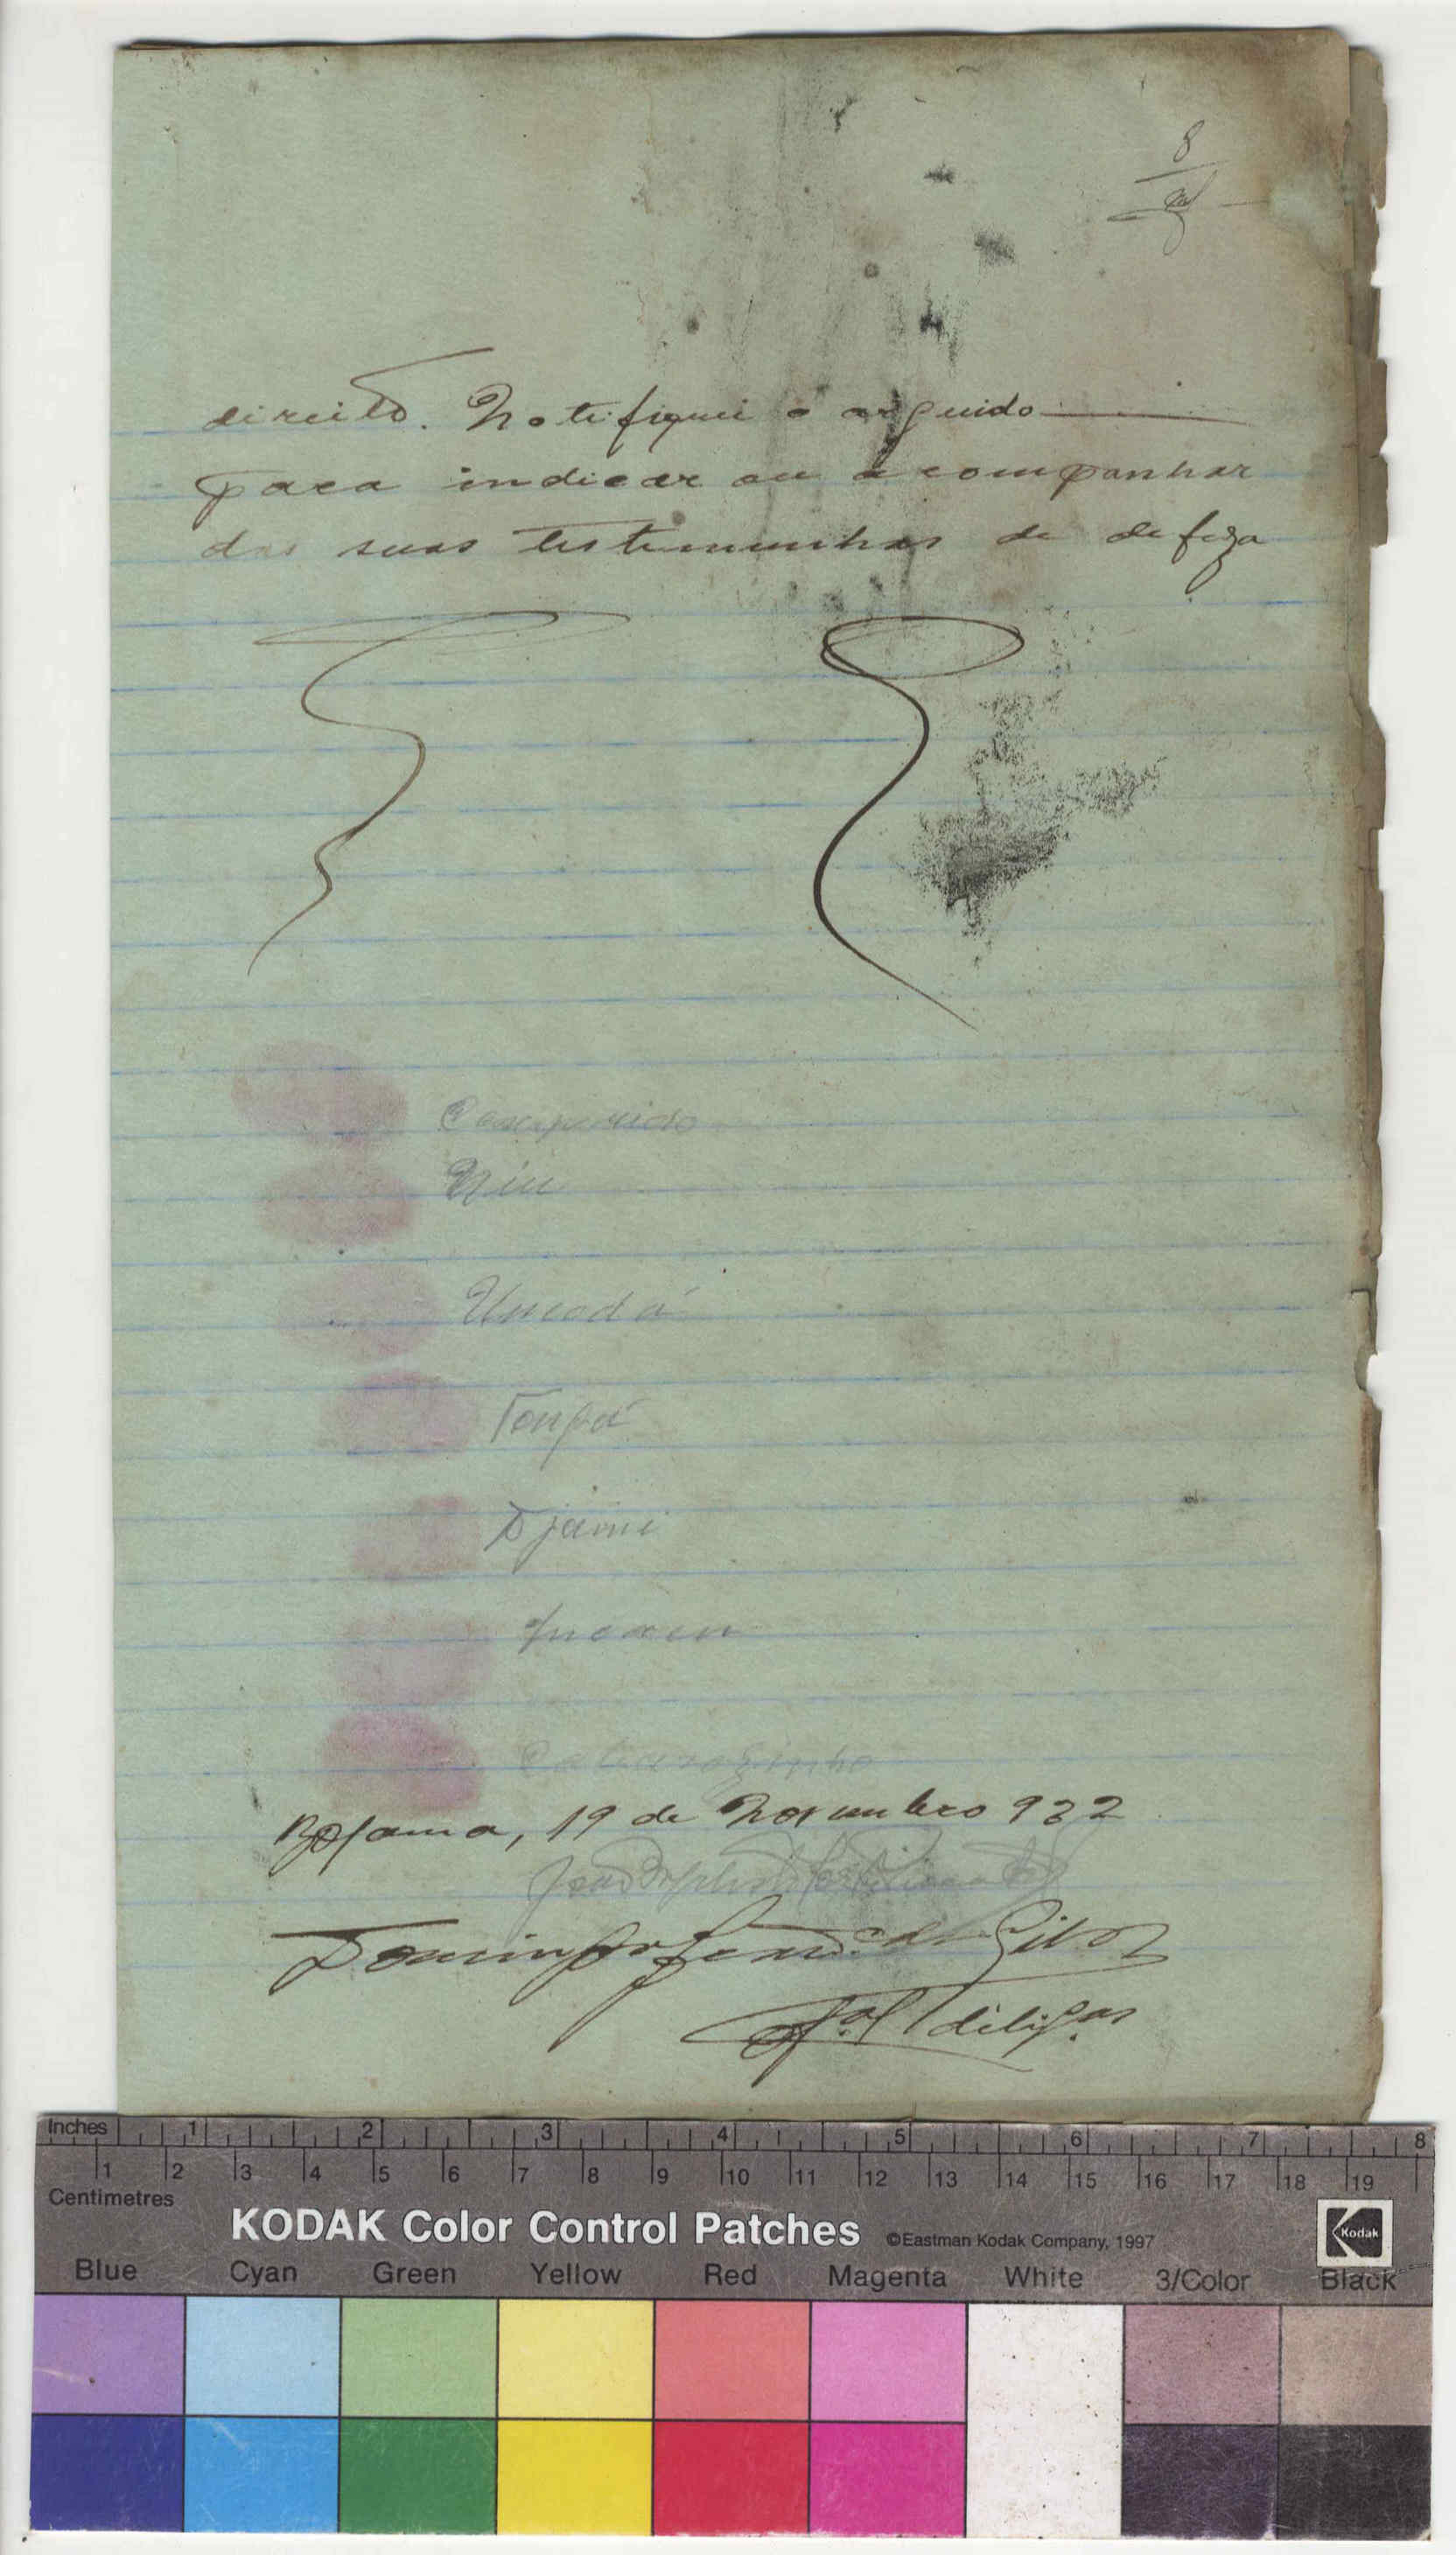 8
direito. Notifiquei o arguido
para indicar ou acompanhar
das suas testemunhas de defeza
Niu
Uncodá
Djami
Bolama, 19 de Novembro 932
Domingos da Silva
dilig.as
Inches 1 2 3 4 5 6 7 8
1 2 3 4 5 6 7 8 9 10 11 12 13 14 15 16 17 18 19
Centimetres
KODAK Color Control Patches ©Eastman Kodak Company, 1997 Kodak
Blue Cyan Green Yellow Red Magenta White 3/Color Black